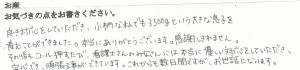 お産
お気づきの点をお書きください。
良き対応をしていただき、小柄な私でも3500gという大きな息子を
産むことができました。本当にありがとうございます。感謝しきれません。
その後もコール押すたび、看護士さんのみなさんには本当に優しい対応をしていただき、
安心でき、頑張る事ができています。これからも数日間ですが、お世話になります。